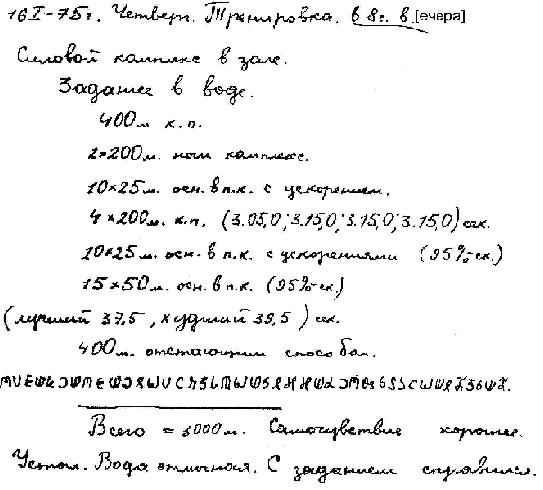 16 I-75г. Четверг. Тренировка. в 8г. в.[ечера]
Силовой комплекс в зале.
Задание в воде.
400м к.п.
2×200м. ноги комплекс.
10×25м. осн. в п.к. с ускорением.
4×200м. к.п. (3.05,0; 3.15,0; 3.15,0; 3.15,0) сек.
10×25м. осн. в п.к. с ускорениями (95% ск.)
15×50м. осн. в п.к. (95% ск.)
(лучший 37,5, худший 39,5) сек.
400м. отстающим способом.
Всего = 3000м. Самочувствие хорошее.
Устал. Вода отличная. С заданием справился.